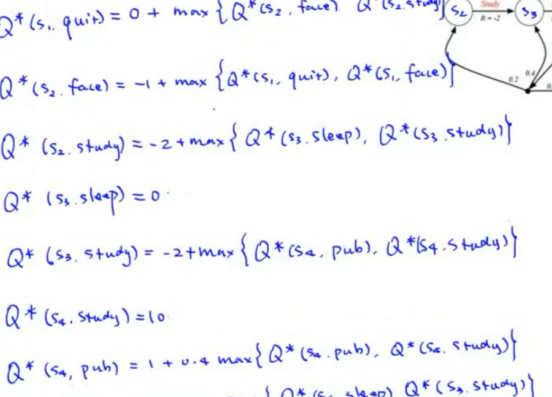 Q*(s₁, quit) = 0 + max { Q*(s₂, face) Q*(s₂, study)
s₂ Study R = -2 s₃
0.2 0.4
Q*(s₂, face) = -1 + max { Q*(s₁, quit), Q*(s₁, face) }
Q*(s₂, study) = -2 + max { Q*(s₃, sleep), Q*(s₃, study) }
Q*(s₃, sleep) = 0
Q*(s₃, study) = -2 + max { Q*(s₄, pub), Q*(s₄, study) }
Q*(s₄, study) = 10
Q*(s₄, pub) = 1 + 0.4 max { Q*(s₄, pub), Q*(s₄, study) }
{ Q*(s₃, sleep) Q*(s₃, study) }